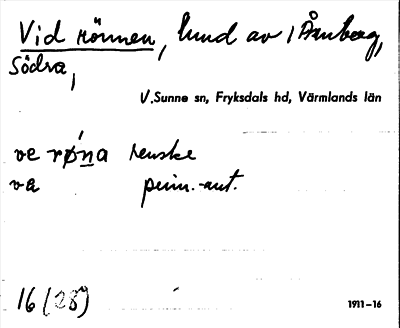 Vid rönnen, lund av 1 Åmberg,
Södra,
V.Sunne sn, Fryksdals hd, Värmlands län
ve rǿna
va prim.-ant.
16 (28)
1911-16